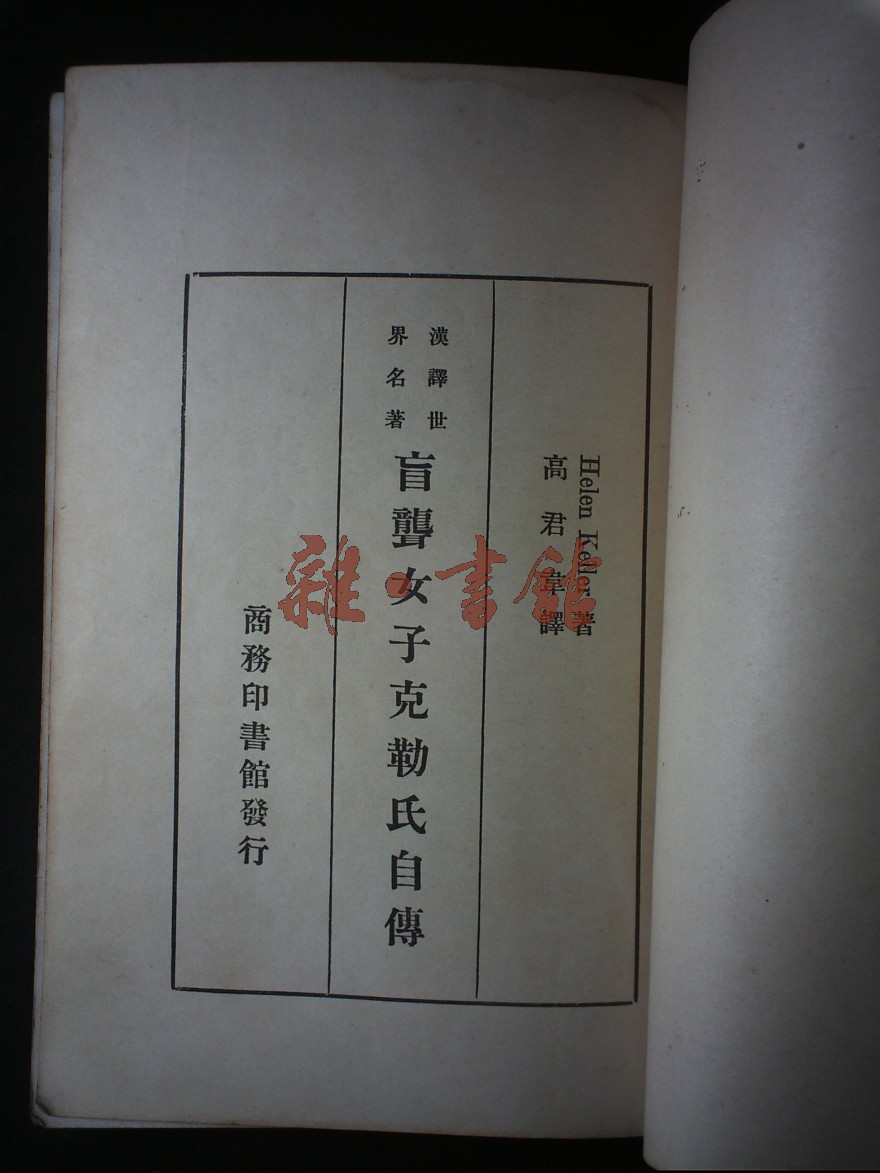 Helen Keller 著
高君韋譯
漢譯世
界名著
盲聾女子克勒氏自傳
商務印書館發行
雜·書館